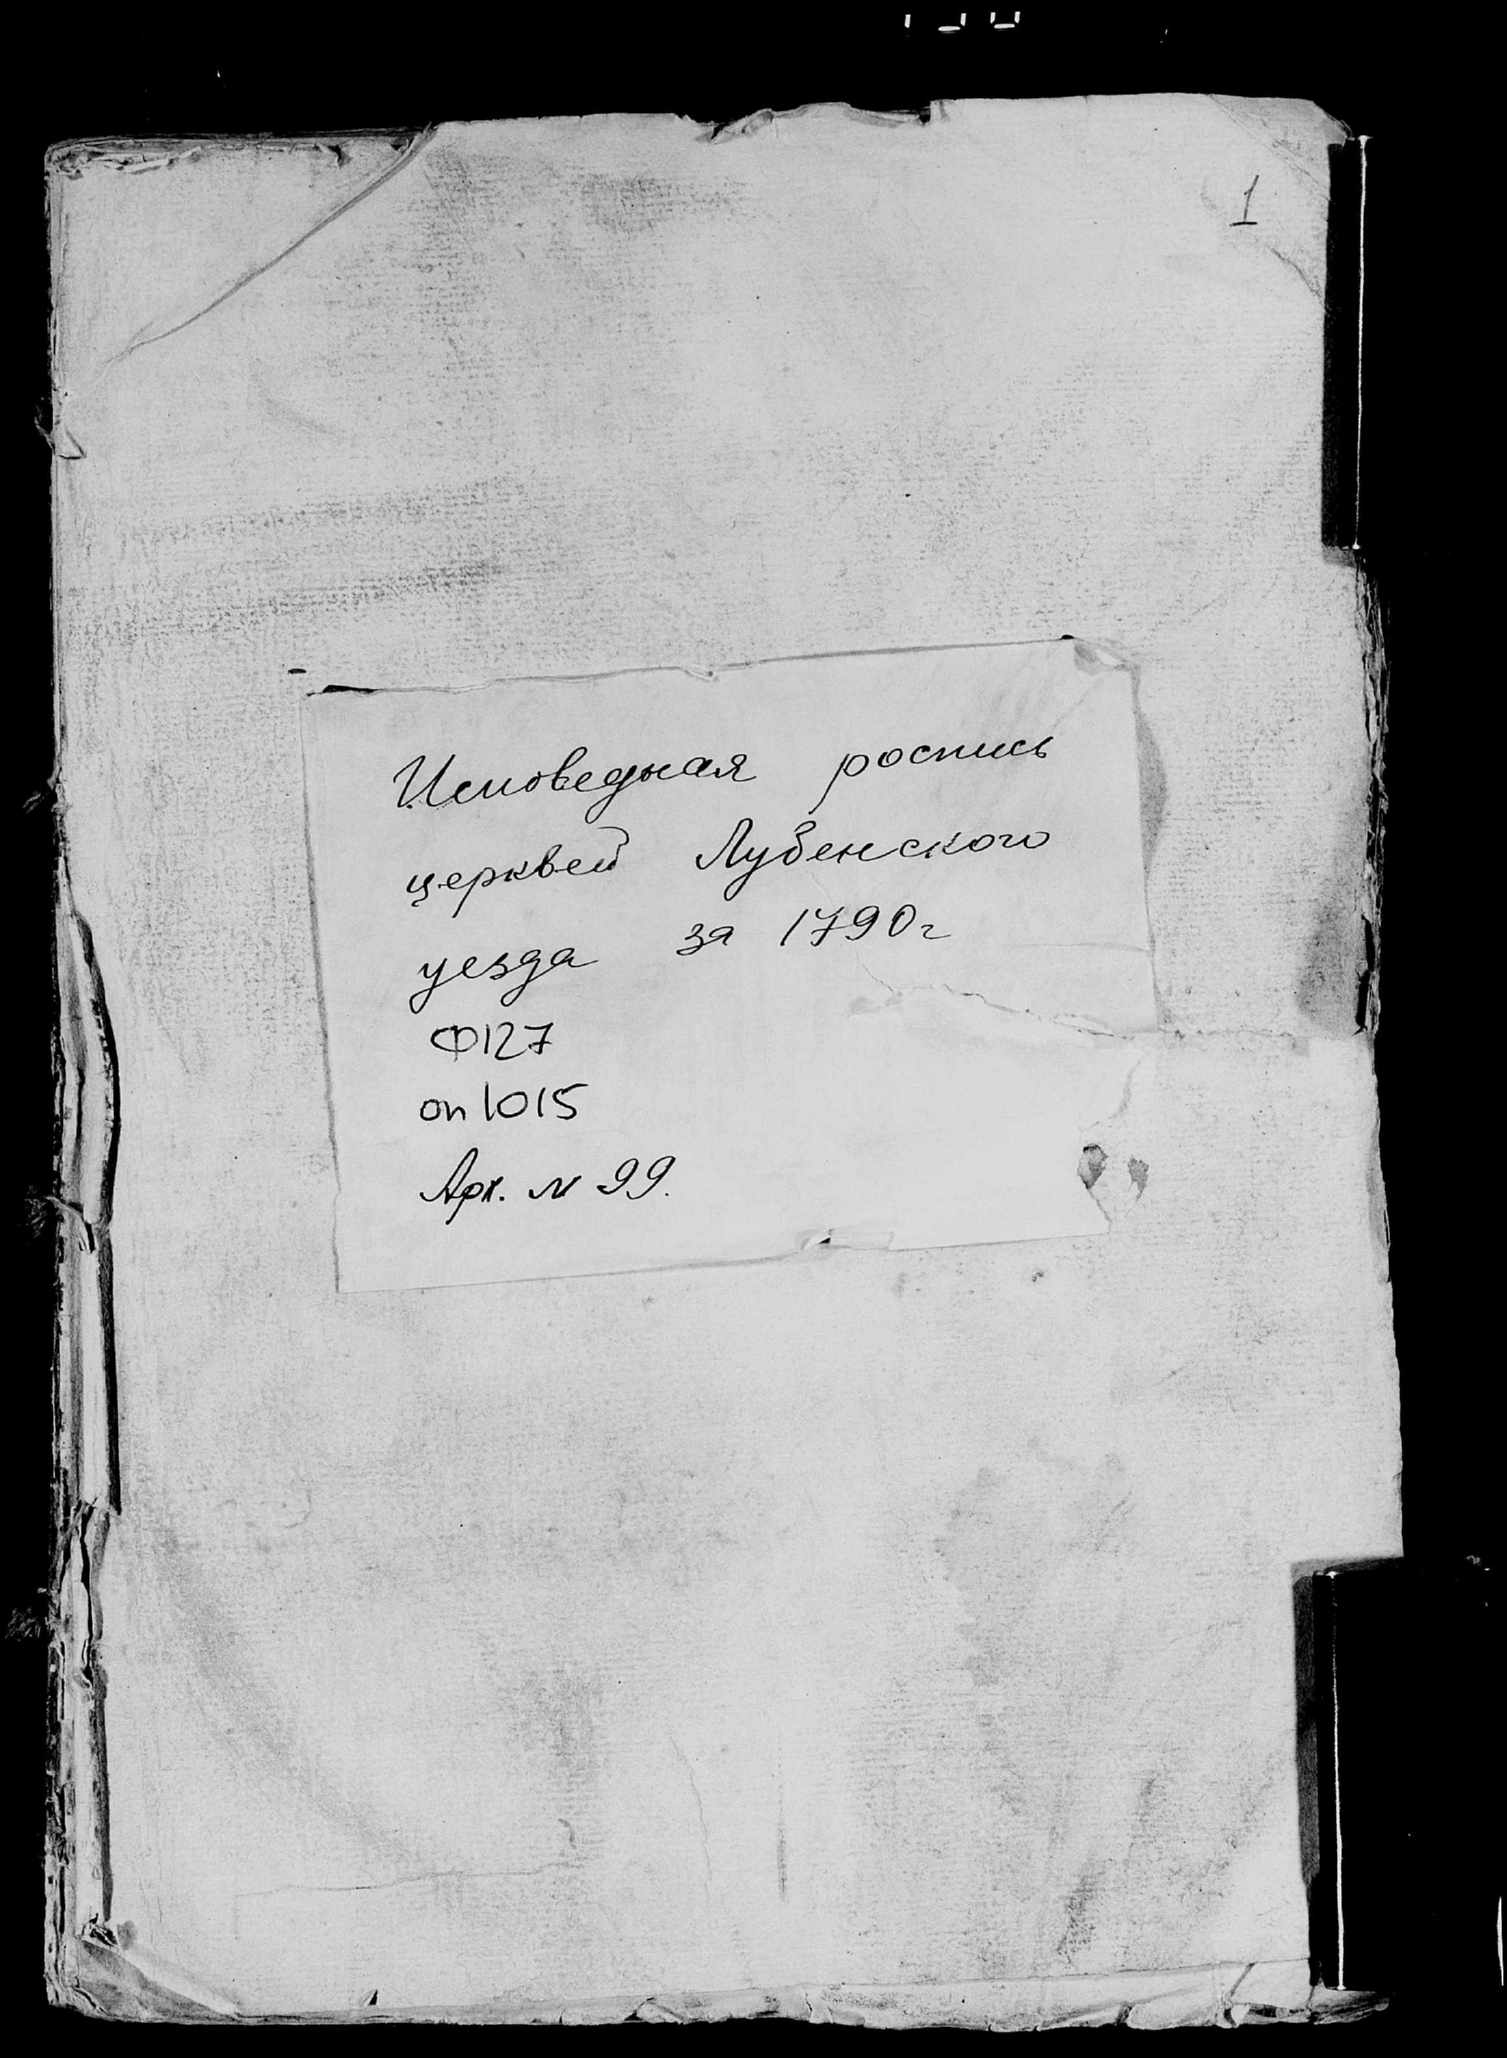 1
Исповедная роспись
церквей Лубенского
уезда за 1790г
Ф127
оп 1015
Арх. N 99.